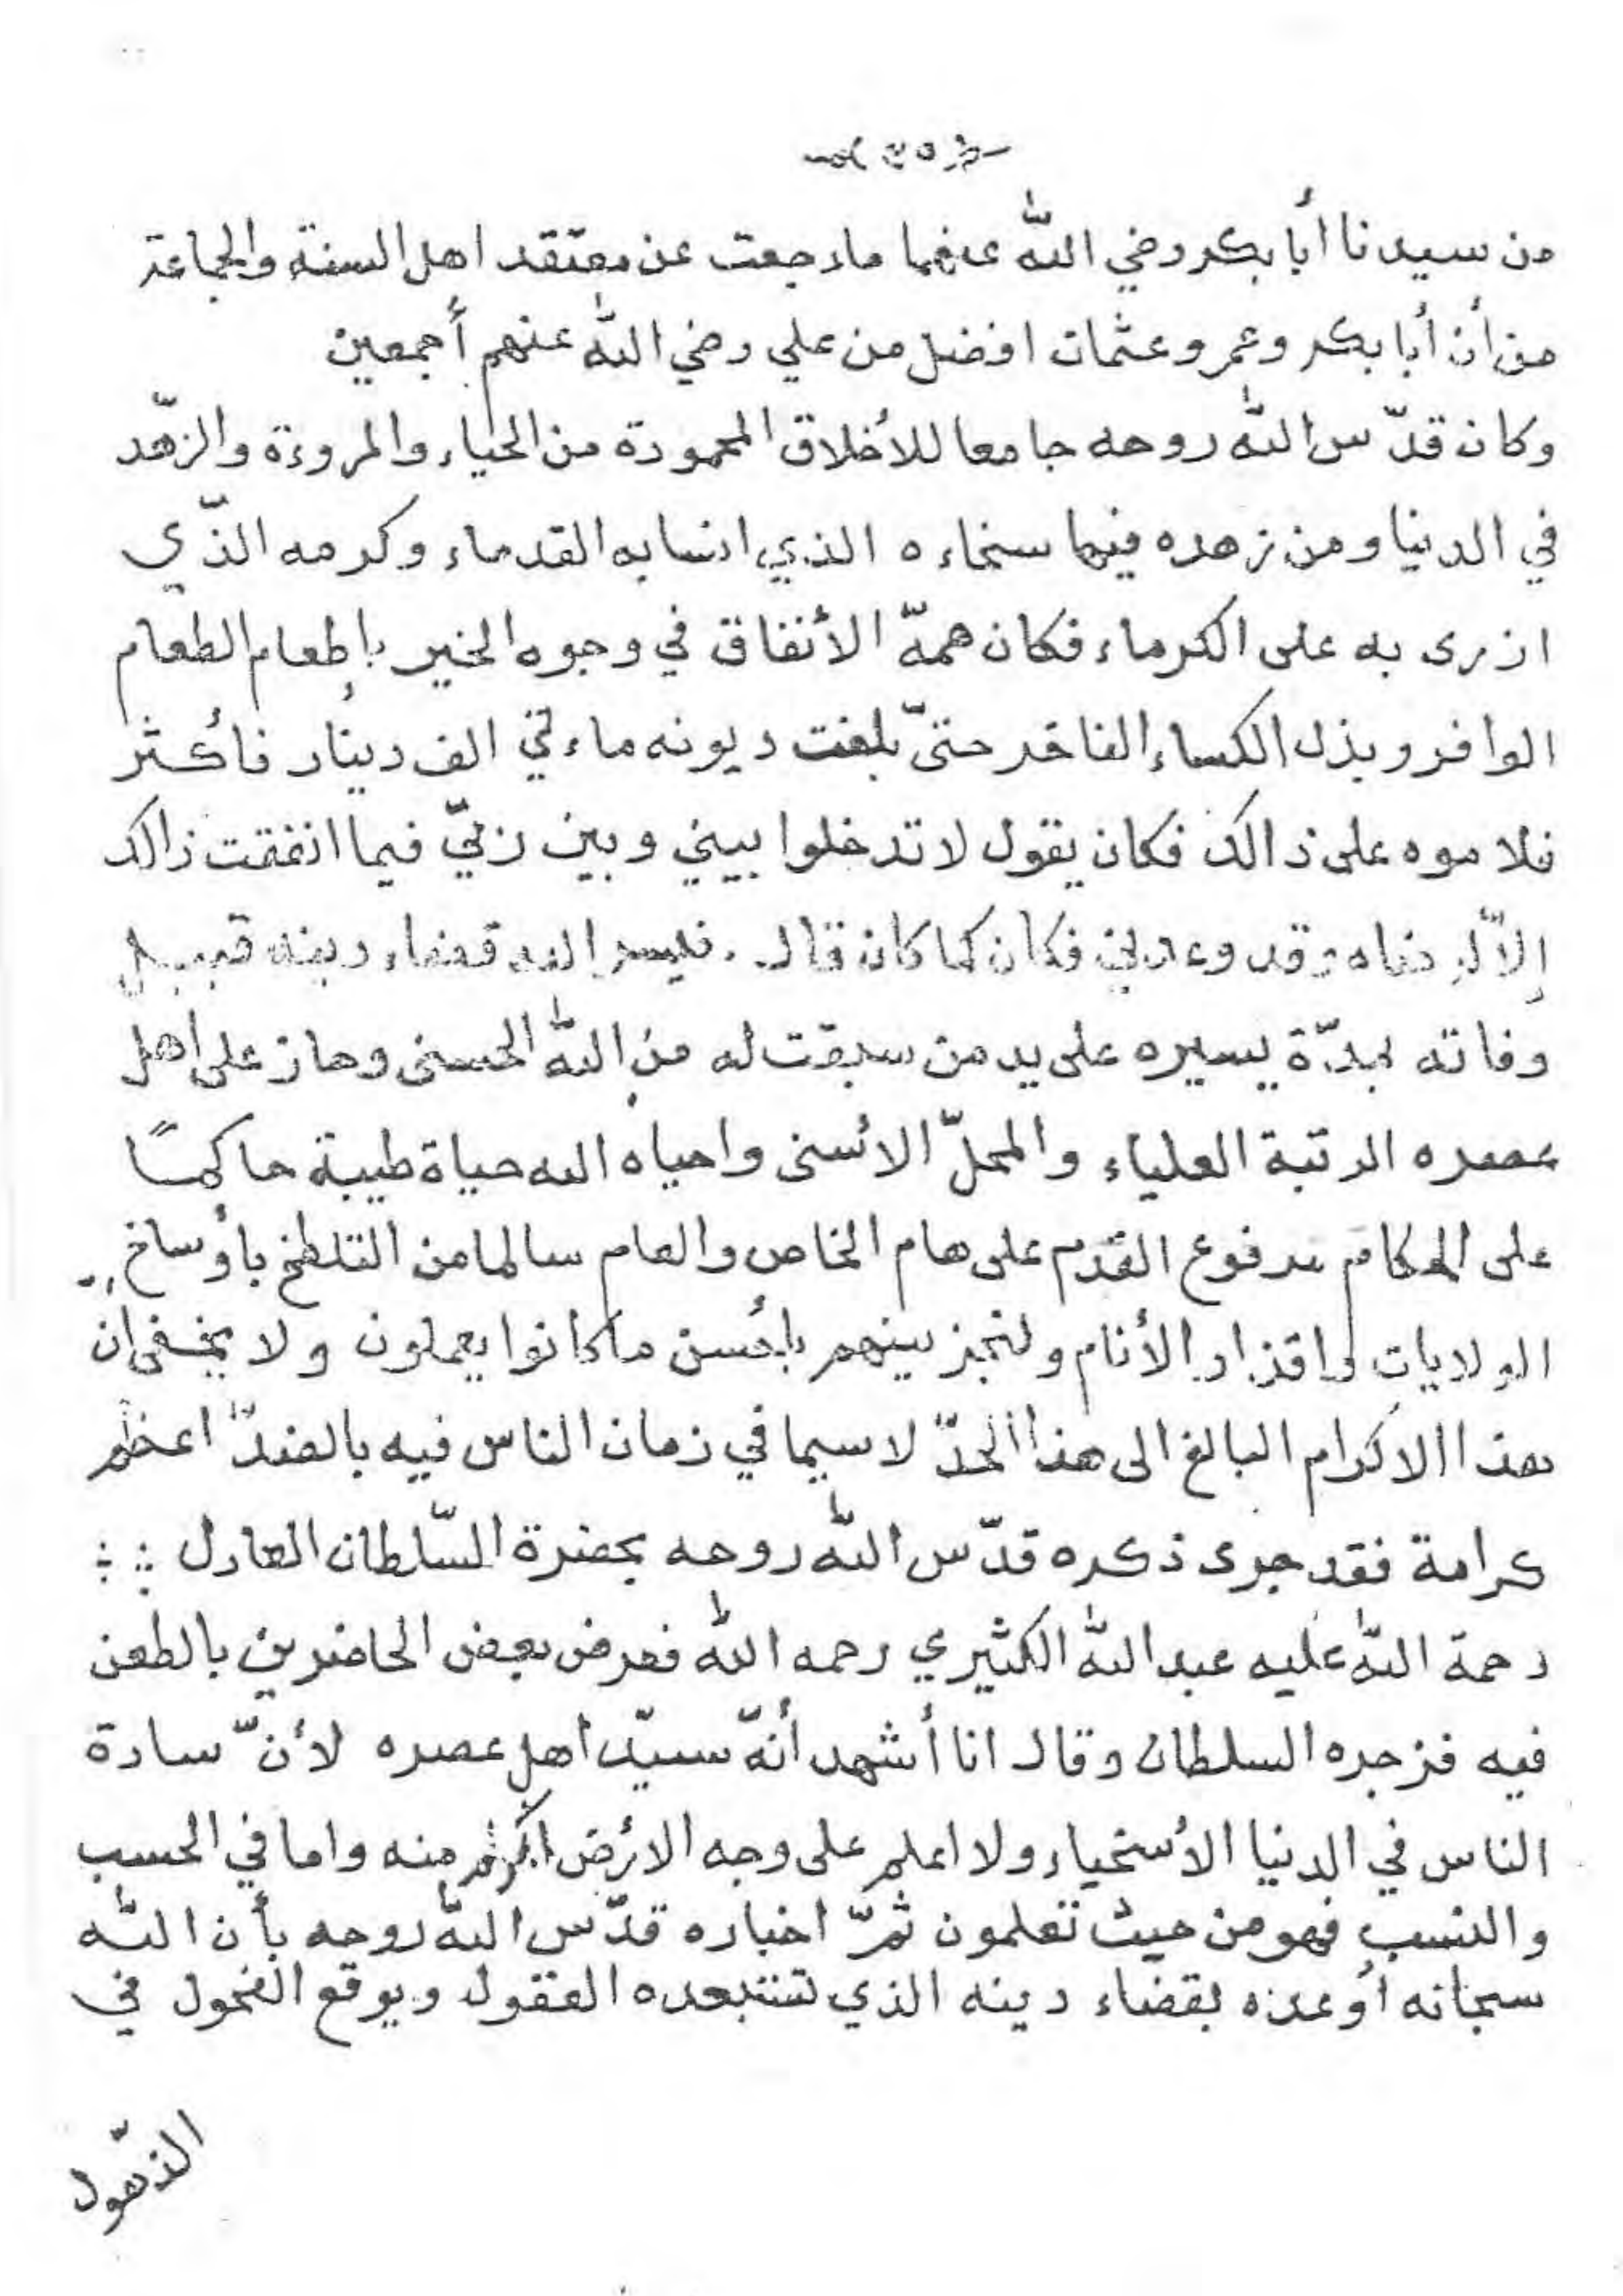 من سيدنا أبا بكر رضي الله عنهما ما رجعت عن معتقد اهل السنة والجماعة
من أن أبا بكر وعمر وعثمان افضل من علي رضي الله عنهم أجمعين
وكان قدّس الله روحه جامعا للأخلاق المحمودة من الحياء والمروءة والزهّد
في الدنيا ومن زهده فيها سخاءه الذي انسا به القدماء وكرمه الذّي
ازرى به على الكرماء فكان همهّ الأنفاق في وجوه الخير بإطعام الطعام
الوافر وبذل الكساء الفاخر حتىّ بلغت ديونه ماءتي الف دينار فأكثر
فلاموه على ذالك فكان يقول لا تدخلوا بيني وبين ربيّ فيما انفقت ذالك
إلاّ لرضاه وقد وعدني فكان كما كان قال . فيسر الله قضاء دينه قبيل
وفاته بمدّة يسيره على يد من سبقت له من الله الحسنى وحاز على أهل
عصره الرتبة العلياء والمحلّ الأسنى واحياه الله حياة طيبة حاكمًا
على الحكام مرفوع القدم على هام الخاص والعام سالما من التلطخ بأوساخ
الولايات واقذار الأنام ولنجزينهم بأحسن ما كانوا يعملون ولا يخفى ان
هذا الاكرام البالغ الى هذا الحدّ لا سيما في زمان الناس فيه بالضدّ اعظم
كرامة فقد جرى ذكره قدّس الله روحه بحضرة السّلطان العادل
رحمة الله عليه عبد الله الكثيري رحمه الله فعرض بعض الحاضرين بالطعن
فيه فزجره السلطان وقال انا أشهد أنهّ سيدّ أهل عصره لأنّ سادة
الناس في الدنيا الأسخياء ولا اعلم على وجه الأرض اكرم منه واما في الحسب
والنسب فهو من حيث تعلمون ثمّ اخباره قدّس الله روحه بأن الله
سبحانه أوعده بقضاء دينه الذي تستبعده العقول ويوقع الفحول في
الذّهول